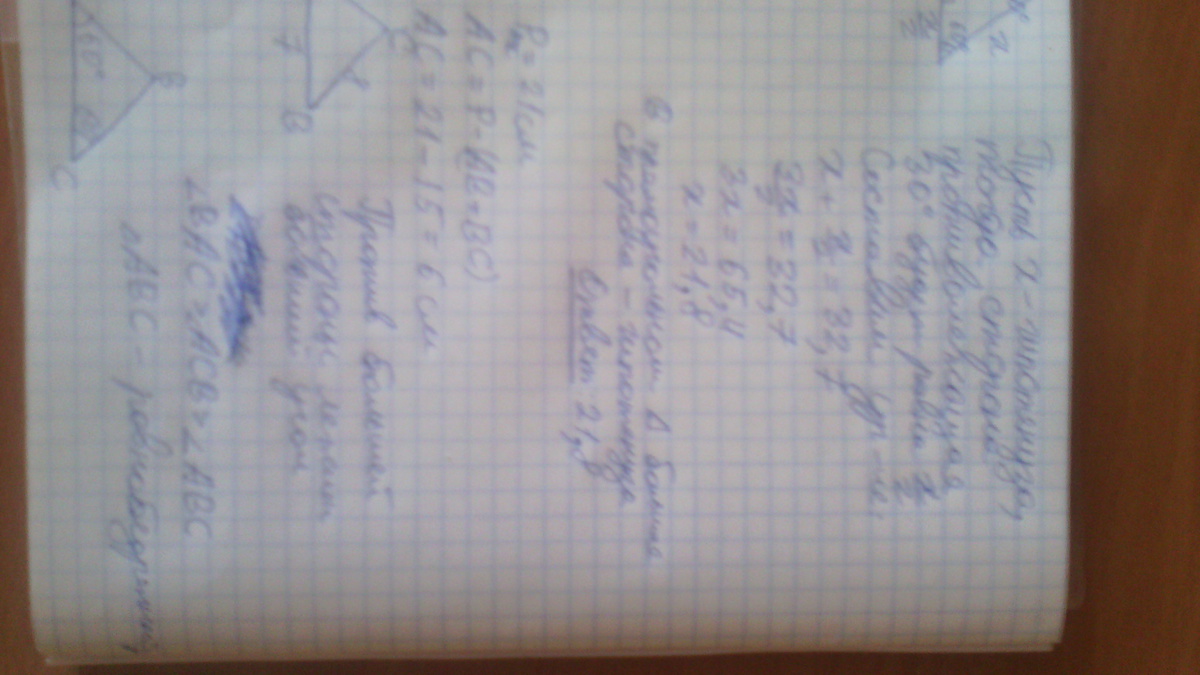 x
x/2
60°
Пусть x - гипотенуза,
тогда сторона
противолежащая
30° будет равна x/2
Составим ур-ие.
x + x/2 = 32,7
3x/2 = 32,7
3x = 65,4
x = 21,8
В прямоугольном Δ большая
сторона - гипотенуза
Ответ 21,8
C
8
7
B
P = 21см
AC = P-(AB+BC)
AC = 21-15 = 6 см
Против большей
стороны лежит
больший угол
B
60°
C
∠BAC = ∠ACB = ∠ABC
ΔABC - равнобедренный,